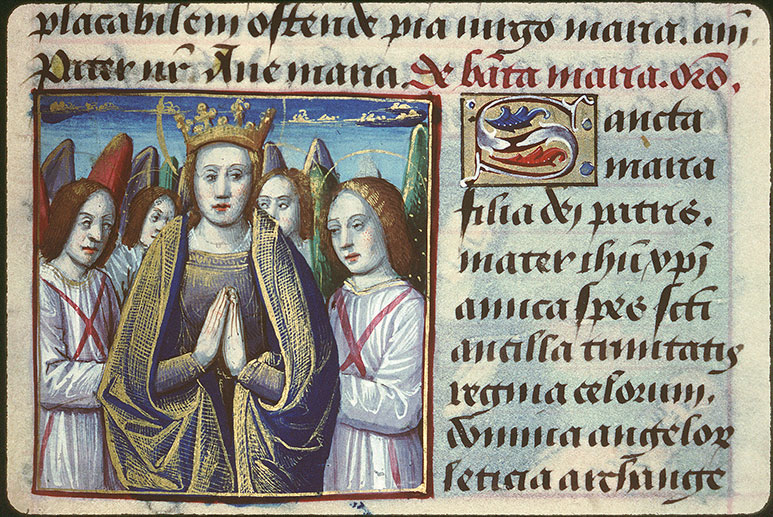 placabilem ostende pia uirgo maria. am̄
Pater nr̄ Aue maria De bāta maria. orō.
Sancta
maria
filia dei patris.
mater ihū xpī
amica sp̄s scti
ancilla trinitatis
regina celorum.
domina angelor
leticia archange